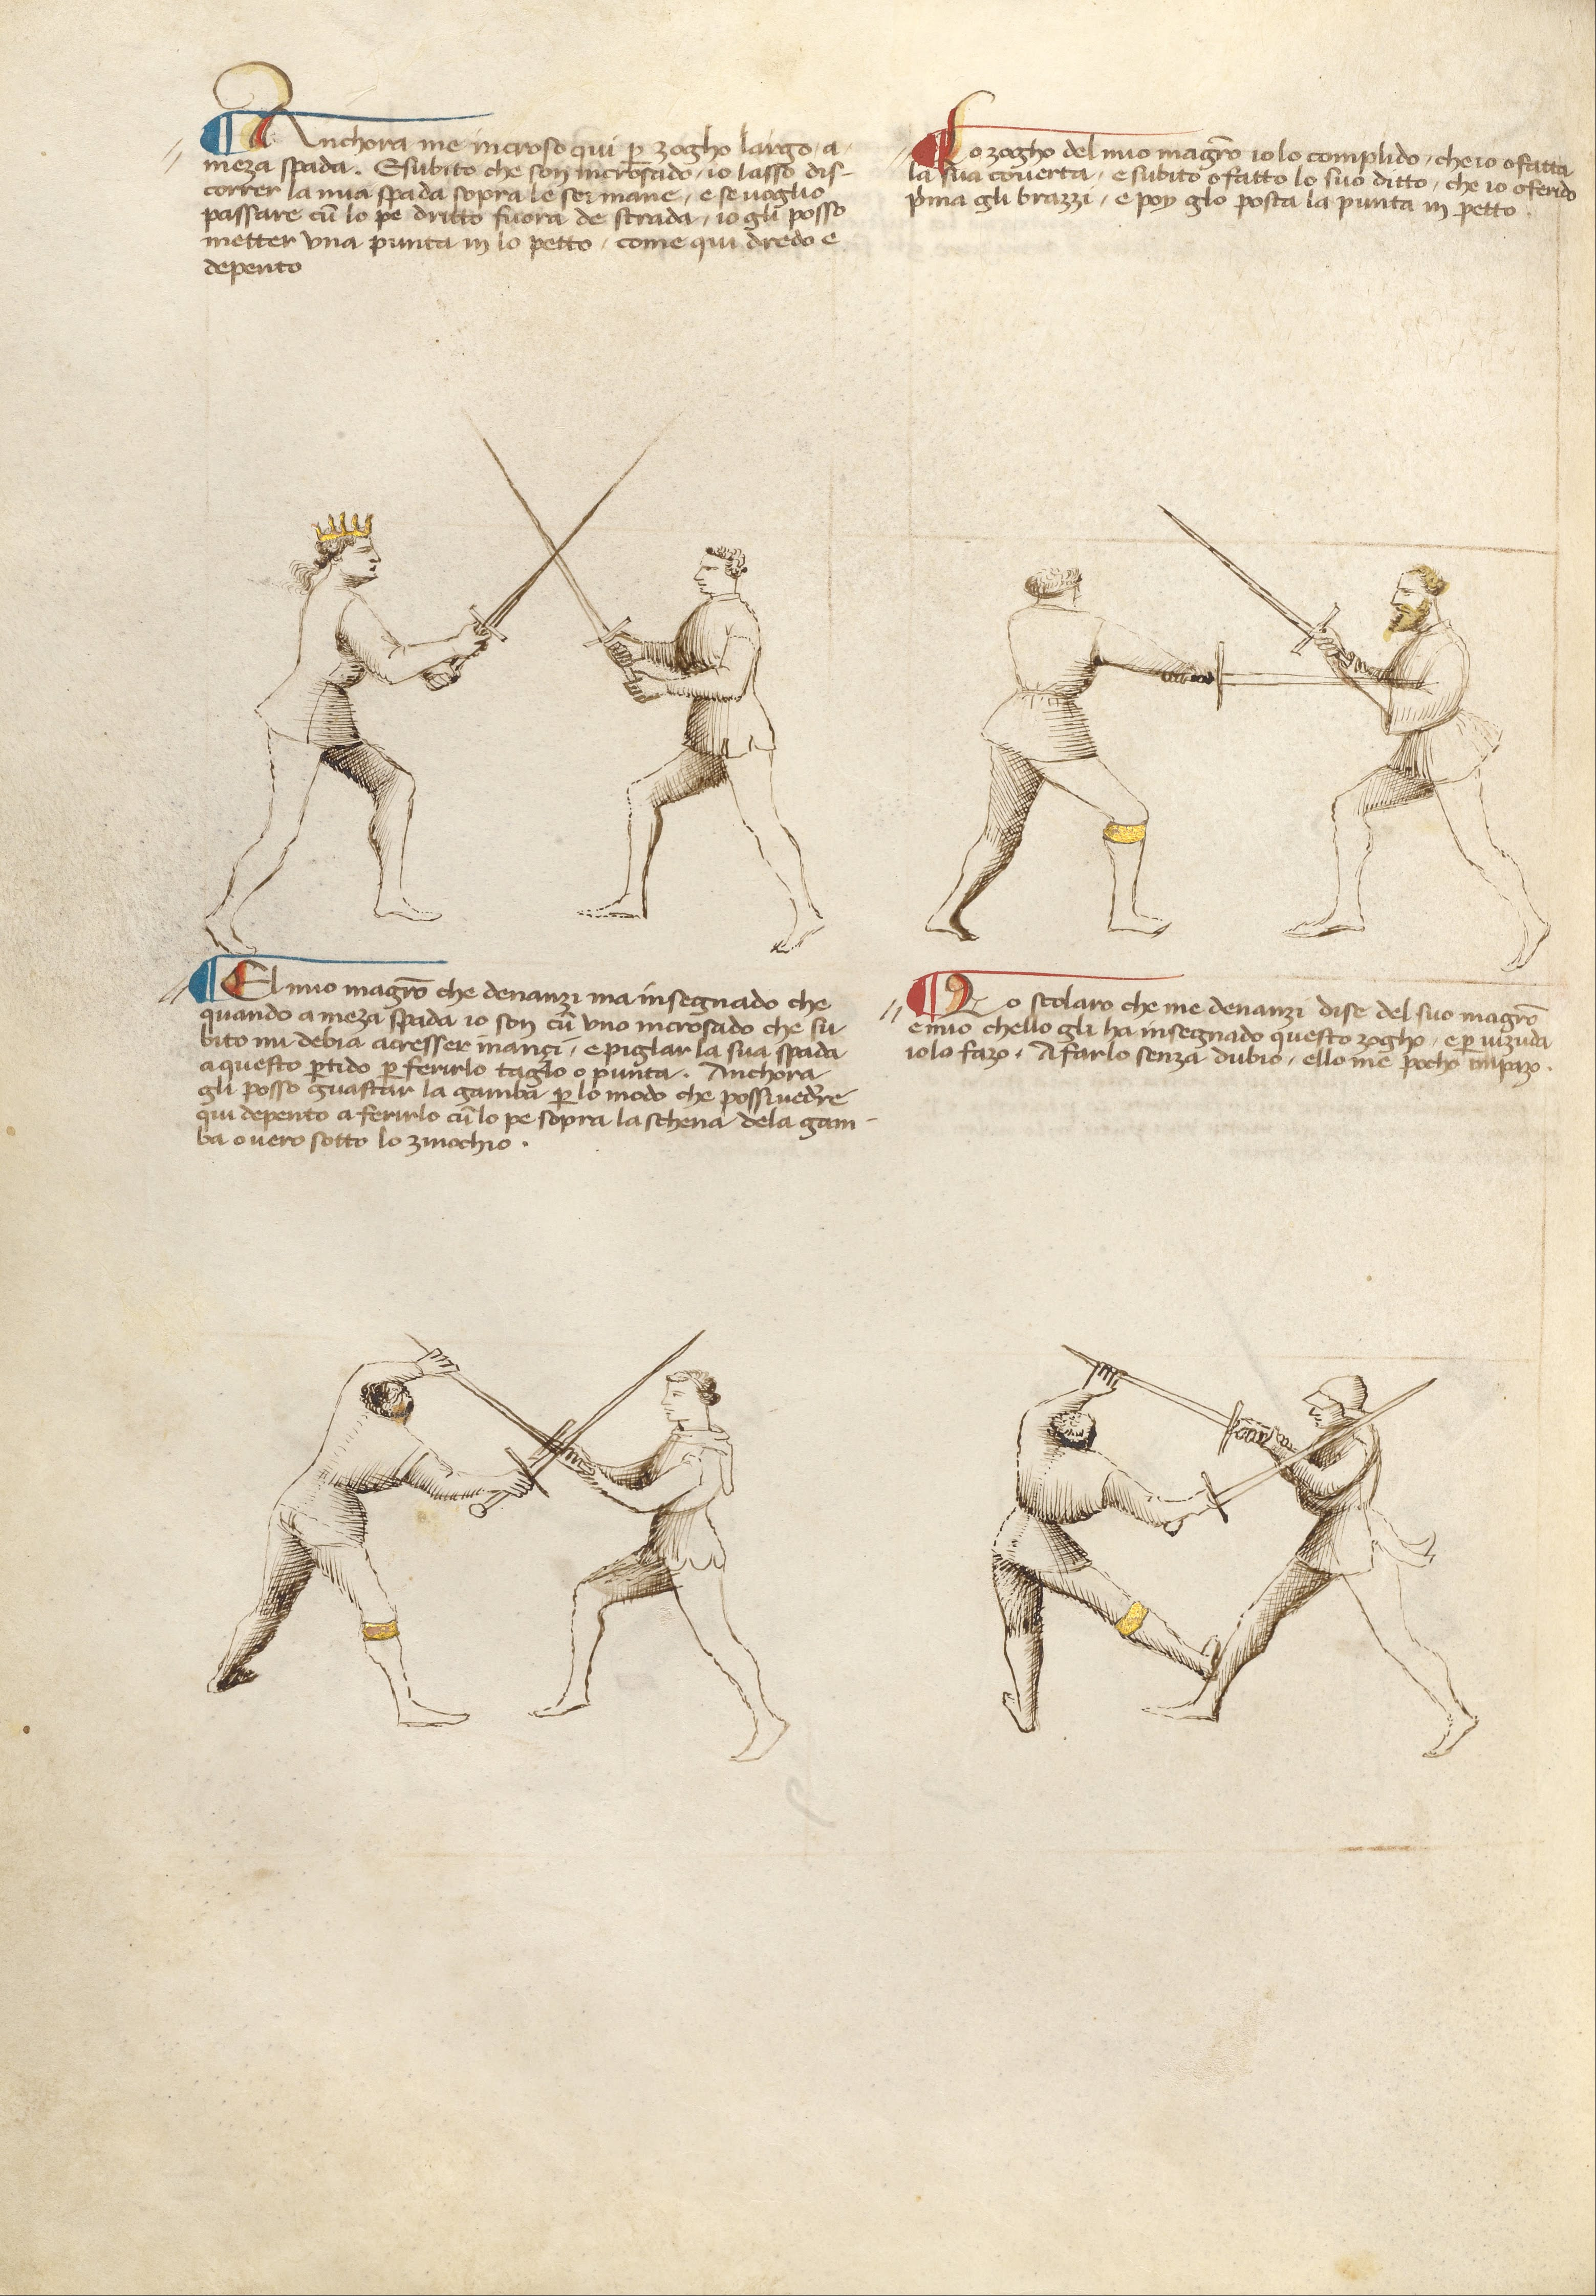 Anchora me incroso qui ꝑ zogho largo / a /
meza spada. E subito che son incrosado / io lasso dis-
correr la mia spada sopra le soi mane / e se voglio
passare cū lo pe dritto fuora de strada / io gli posso
metter una punta in lo petto / come qui dredo e
depento
Lo zogho del mio magrō io lo complido / che io o fatta
la sua coverta / e subito o fatto lo suo ditto / che io o ferido
pma gli brazzi / e poy glo posta la punta in petto .
El mio magrō che denanzi ma insegnado che
quando a meza spada io son cū uno incrosado che su
bito mi debia acresser inançi / e piglar la sua spada
a questo ꝑtido ꝑ ferirlo taglo o punta . Anchora
gli posso guastar la gamba ꝑ lo modo che possi vedere
qui depento a ferirlo cū lo pe sopra la schena dela gam-
ba overo sotto lo zinochio .
Lo scolaro che me denanzi dise del suo magrō
e mio chello gli ha insegnado questo zogho / e ꝑ vizuda
io lo fazo . A farlo senza dubio / ello mē pocho impazo .